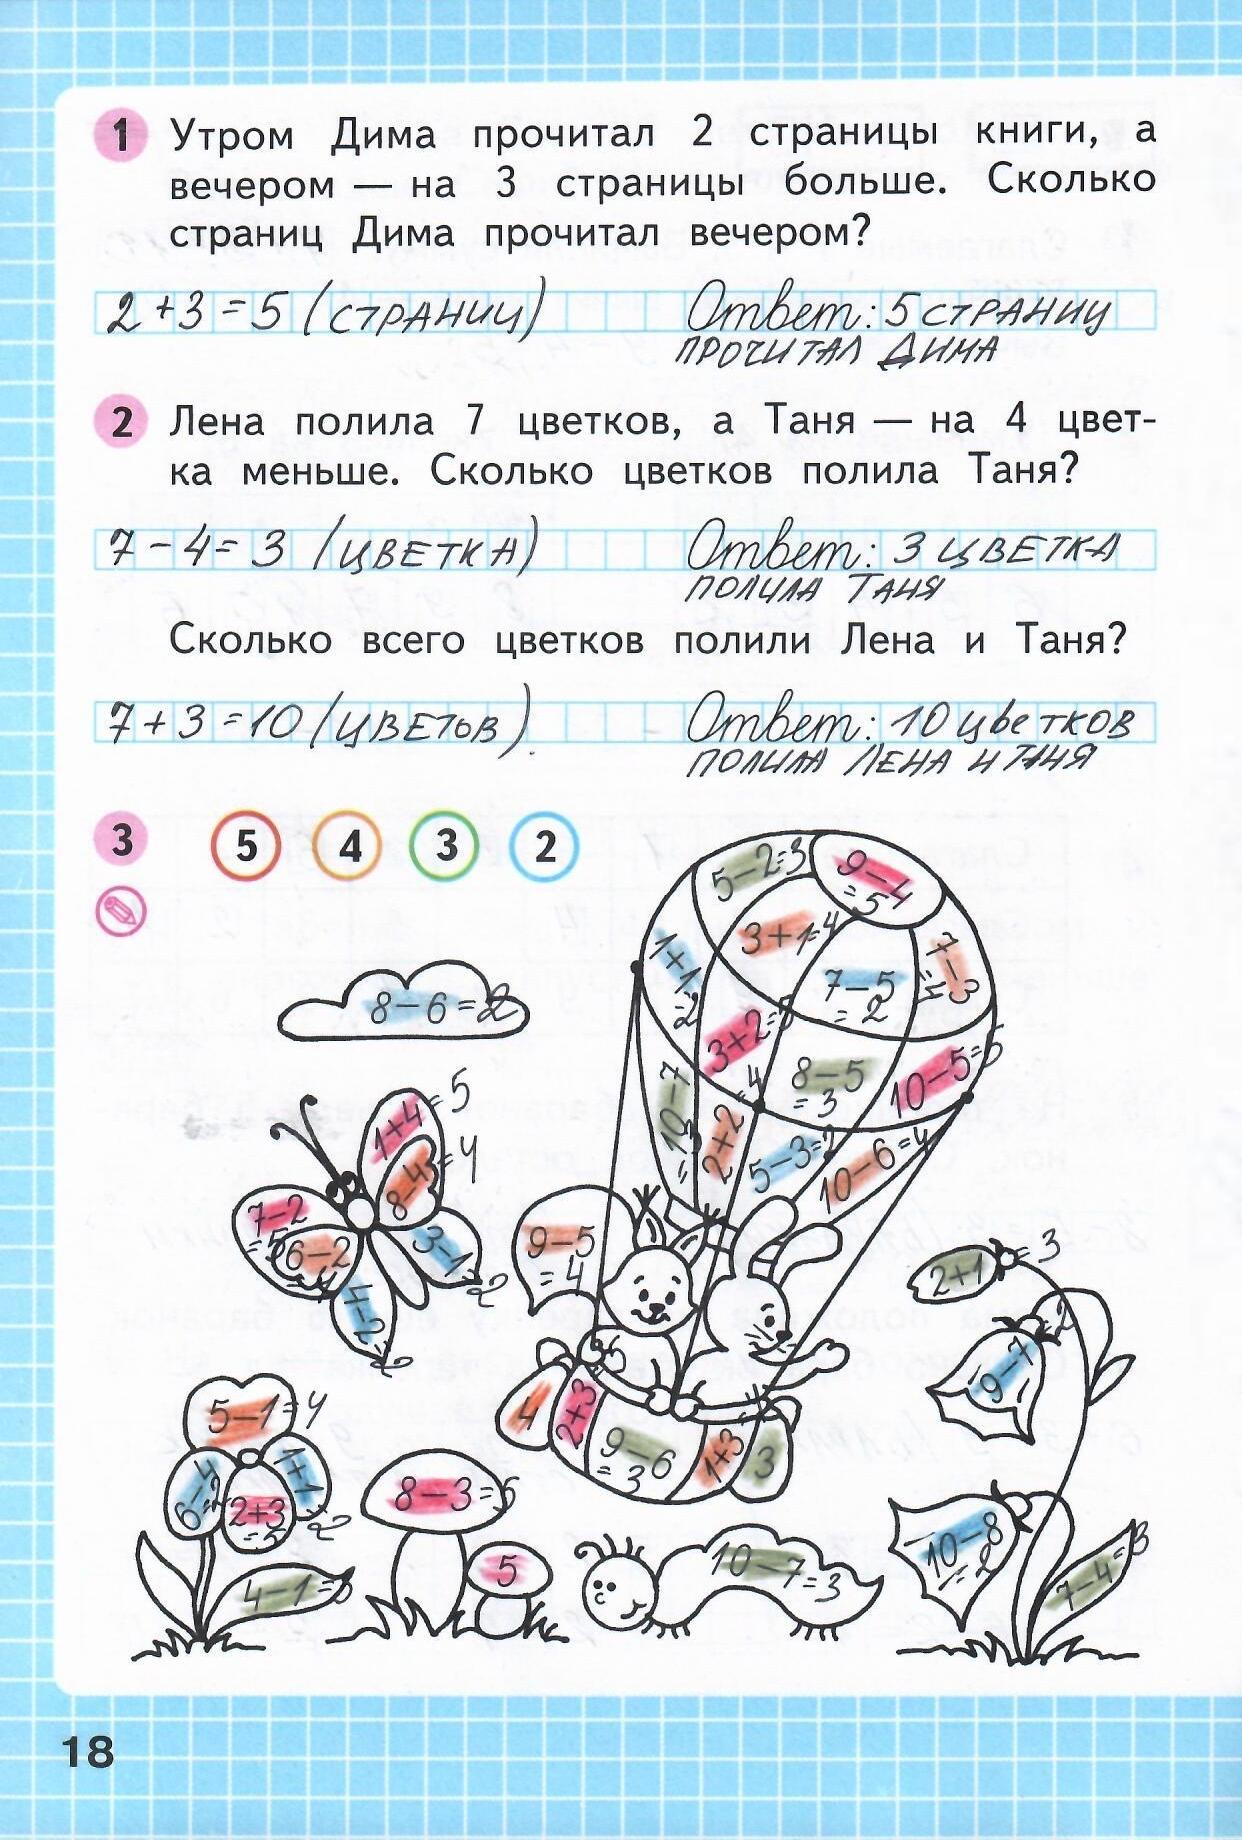 1 Утром Дима прочитал 2 страницы книги, а
вечером — на 3 страницы больше. Сколько
страниц Дима прочитал вечером?
2+3=5 (СТРАНИЦ) Ответ: 5 СТРАНИЦ
ПРОЧИТАЛ ДИМА
2 Лена полила 7 цветков, а Таня — на 4 цвет-
ка меньше. Сколько цветков полила Таня?
7-4=3 (ЦВЕТКА) Ответ: 3 ЦВЕТКА
ПОЛИЛА ТАНЯ
Сколько всего цветков полили Лена и Таня?
7+3=10 (ЦВЕТЬВ). Ответ: 10 ЦВЕТКОВ
ПОЛИЛА ЛЕНА И ТАНЯ
3 5 4 3 2
5-2=3
9-4
=5
1+1
=2
3+1=4
7-5
=2
7-3
=4
8-6=2
3+2=5
8-5
=3
10-5=5
10-7
=3
2+2=4
5-3=2
10-6=4
1+4=5
8-4=4
7-2
=5
6-2
=4
3-1=2
4-2=2
9-5
=4
2+1=3
9-7=2
4
2+3
9-6
=3
1+3
3
5-1=4
6-4
=2
1+1=2
2+3
=5
4-1=3
8-3=5
5
10-7=3
10-8
=2
7-4=3
18